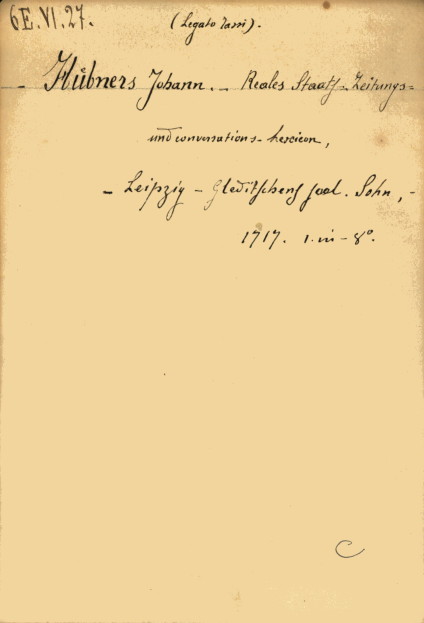 6E.VI.27.
(Legato Tassi).
- Hübners Johann. - Reales Staats-Zeitungs=
und conversations- lexicon,
- Leipzig - Gleditschens seel. Sohn, -
1717. 1. in - 8º.
C